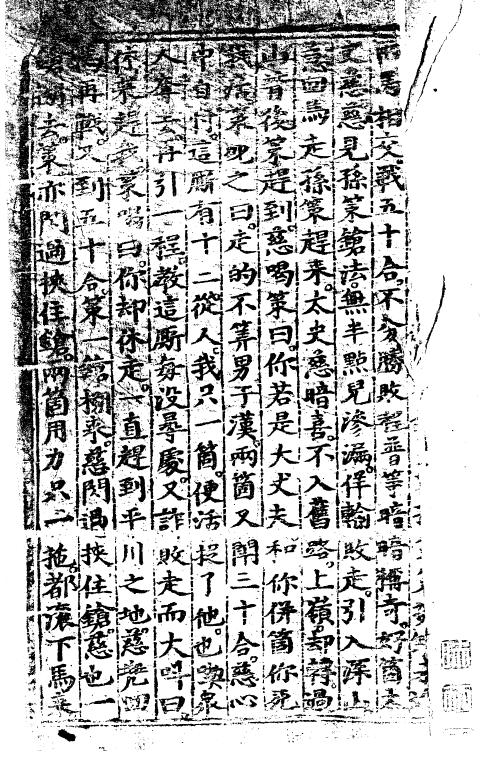 兩馬相交戰五十合。不分勝敗。程普等暗暗稱奇。好箇太
史慈。慈見孫策鎗法無半點兒滲漏。佯輸敗走。引入深山。
慈回馬走。孫策趕來。太史慈暗喜。不入舊路。上嶺却轉過
山背後。策趕到。慈喝策曰。你若是大丈夫。和你併箇你死
我活。策叱之曰。走的不算男子漢。兩箇又鬭三十合。慈心
中自忖。這廝有十二從人。我只一箇。便活捉了他。也喫衆
人奪去。再引一程。教這廝每沒尋處。又詐敗走而大叫曰。
你來趕我。策喝曰。你却休走。一直趕到平川之地。慈兜回
馬再戰。又到五十合。策一鎗搠來。慈閃過挾住鎗。慈也一
鎗搠去。策亦閃過挾住鎗。兩箇用力只一拖。都滚下馬來